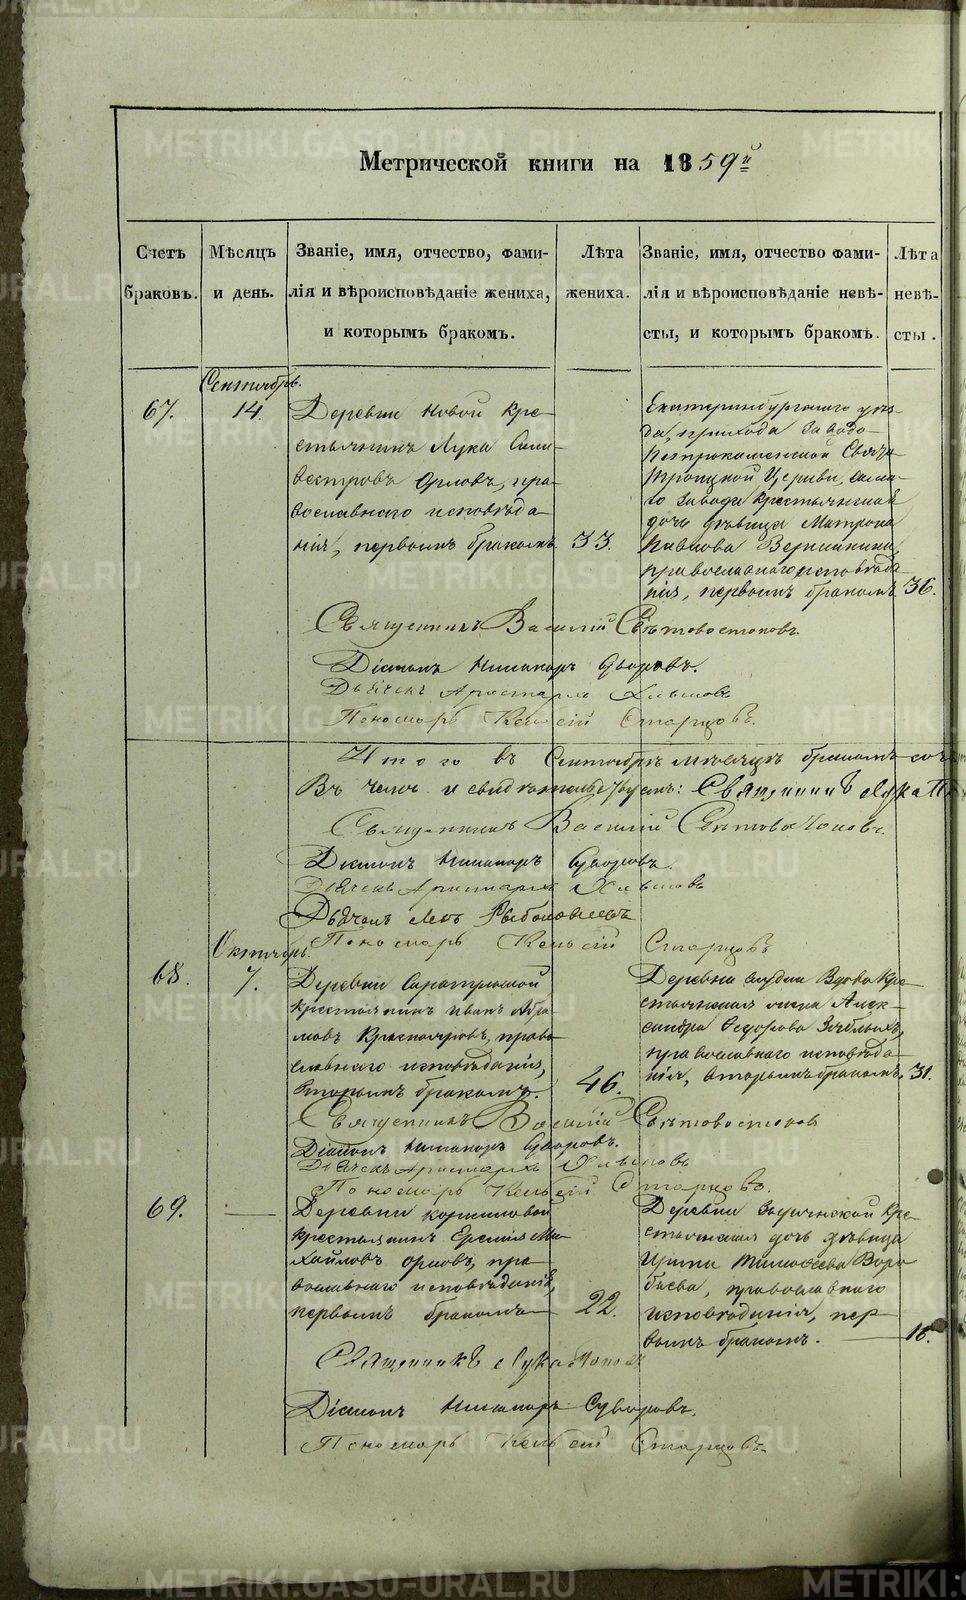 Метрической книги на 1859й
Счетъ браковъ.
Мѣсяцъ и день.
Званіе, имя, отчество, фами-
лія и вѣроисповѣданіе жениха,
и которымъ бракомъ.
Лѣта жениха.
Званіе, имя, отчество фами-
лія и вѣроисповѣданіе невѣ-
сты, и которымъ бракомъ.
Лѣта невѣ-
сты.
Сентябрь.
67.
14.
Деревни Новой кре-
стьянинъ Лука Сили-
вестровъ Орловъ, пра-
вославнаго исповѣда-
нія, первымъ бракомъ
33.
Екатеринбургскаго уѣз-
да, прихода Заводо-
Петрокаменской Свято
Троицкой Церкви, сего-
Завода крестьянская
дочь дѣвица Матрона
Павлова
православнаго исповѣда-
нія, первымъ бракомъ
36.
Священникъ Василій Свѣтовостоковъ.
Діаконъ Никаноръ Суворовъ.
Дьячекъ Аристархъ
Пономарь Старцовъ.
Итого въ Сентябрѣ мѣсяцѣ бракомъ соч
Въ чемъ и свидѣтельствуемъ: Священникъ Лука П
Священникъ Василій Свѣтовостоковъ.
Діаконъ Никаноръ Суворовъ.
Дьячекъ Аристархъ
Дьячокъ Левъ
Пономарь Старцовъ
Октябрь.
68.
7.
Деревни
крестьянинъ Иванъ Абра-
мовъ Красноперовъ, право-
славнаго исповѣданія,
вторымъ бракомъ.
46.
Деревни Слудки Вдова Кре-
стьянская жена Алек-
сандра Ѳедорова
православнаго исповѣда-
нія, вторымъ бракомъ.
31.
Священникъ Василій Свѣтовостоковъ
Діаконъ Никаноръ Суворовъ.
Дьячекъ Аристархъ
Пономарь Старцовъ.
69.
Деревни Корниловой
крестьянинъ Еремія Ми-
хайловъ Орловъ, пра-
вославнаго исповѣданія,
первымъ бракомъ
22.
Деревни кре-
стьянская дочь дѣвица
Ирина Тимоѳеева Воро-
бьева, православнаго
исповѣданія, пер-
вымъ бракомъ.
18.
Священникъ Лука Поповъ
Діаконъ Никаноръ Суворовъ.
Пономарь Старцовъ.
METRIKI.GASO-URAL.RU